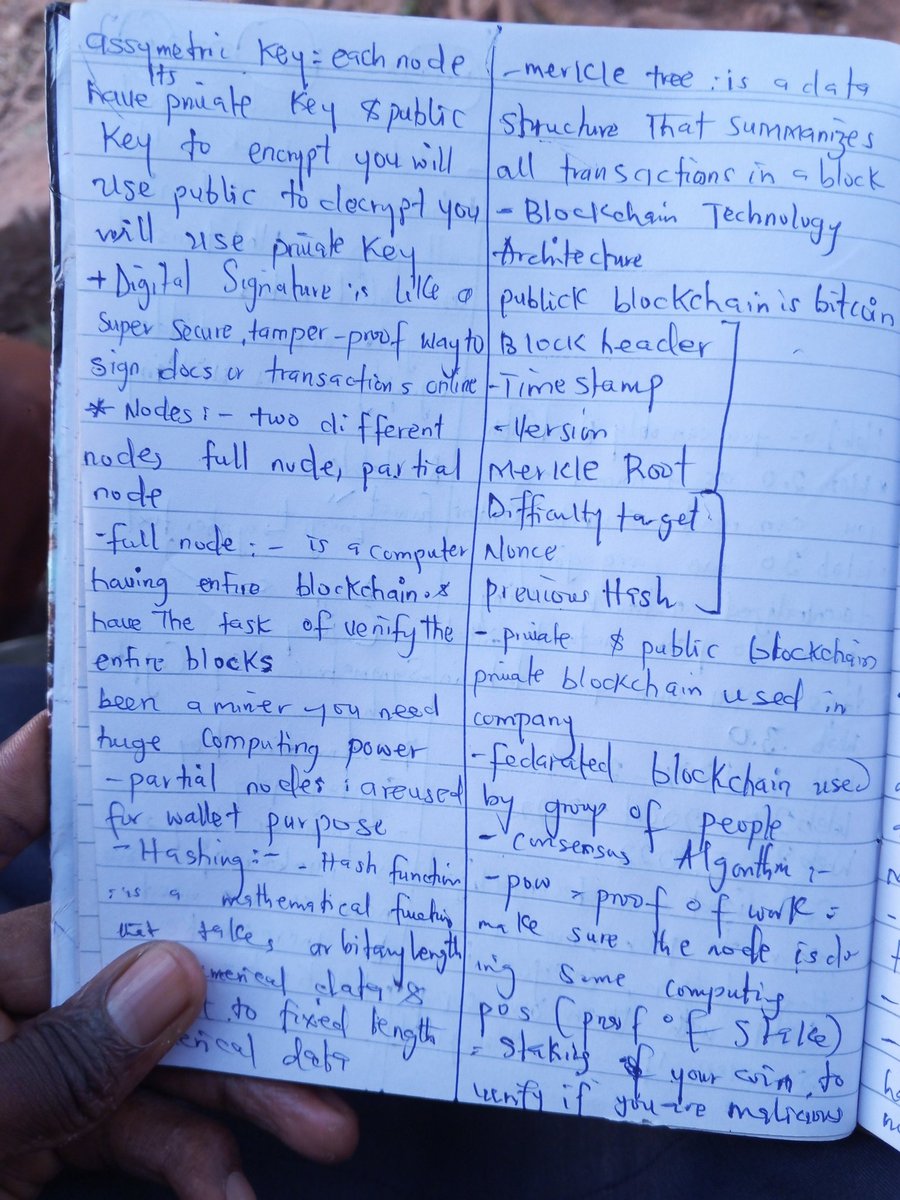 assymetric Key = each node
Its
have private Key & public
Key to encrypt you will
use public to decrypt you
will use private Key
+ Digital Signature is like a
super secure, tamper-proof way to
sign docs or transactions online
* Nodes :- two different
nodes full node, partial
node
- full node :- is a computer
having entire blockchain &
have The task of verify the
entire blocks
been a miner you need
huge Computing power
- partial nodes : are used
for wallet purpose
- Hashing :- - Hash function
is a mathematical function
that takes arbitary length
merical data &
t to fixed length
erical data
- mericle tree : is a data
structure That summarizes
all transactions in a block
- Blockchain Technology
Architecture
publick blockchain is bitcoin
Block header
- Time stamp
- Version
Mericle Root
Difficulty target
Nonce
previous Hash
- private & public blockchain
private blockchain used in
company
- fedarated blockchain used
by group of people
- Consensus Algorithm :-
- pow = proof of work =
make sure the node is do
ing some computing
pos (proof of stake)
= staking of your coin to
verify if you are malicious